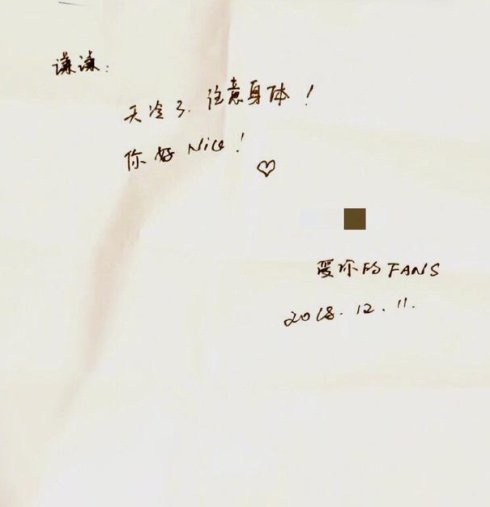 谦谦：
天冷了，注意身体！
你好Nice！
爱你的FANS
2018.12.11.